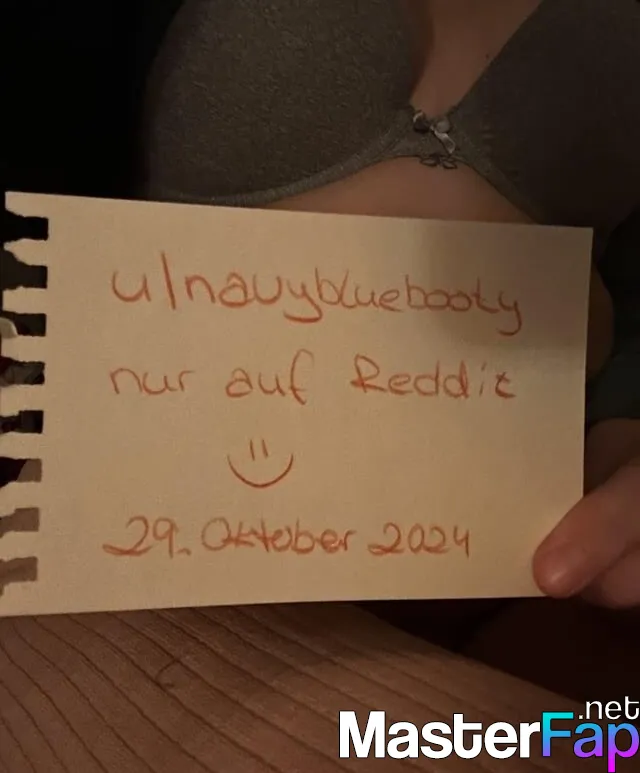 u/navybluebooty
nur auf Reddit
29. Oktober 2024
MasterFap.net